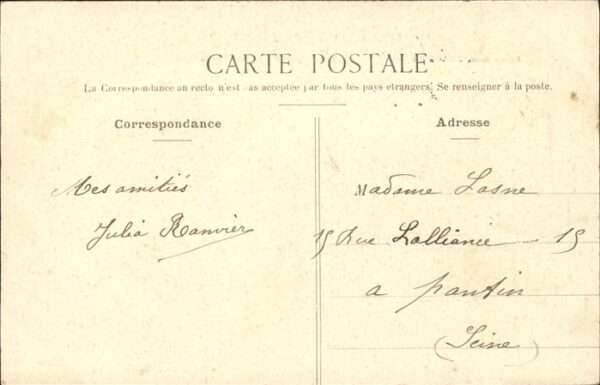 CARTE POSTALE
La Correspondance au recto n'est pas acceptée par tous les pays etrangers. Se renseigner à la poste.
Correspondance
Adresse
Mes amitiés
Julia Ranvier
Madame Lasne
15 Rue Lalliance 15
a pantin
(Seine)